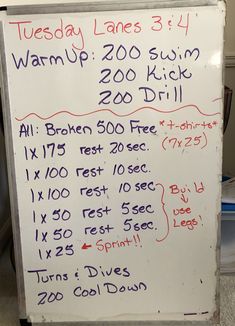 Tuesday Lanes 3 & 4
Warm Up: 200 swim
200 Kick
200 Drill
All: Broken 500 Free *t-shirts*
(7x25)
1x175 rest 20 sec.
1x100 rest 10 sec.
1x100 rest 10 sec.
1x50 rest 5 sec.
1x50 rest 5 sec.
Build
↓
use
Legs!
1x25 ← Sprint!!
Turns & Dives
200 Cool Down